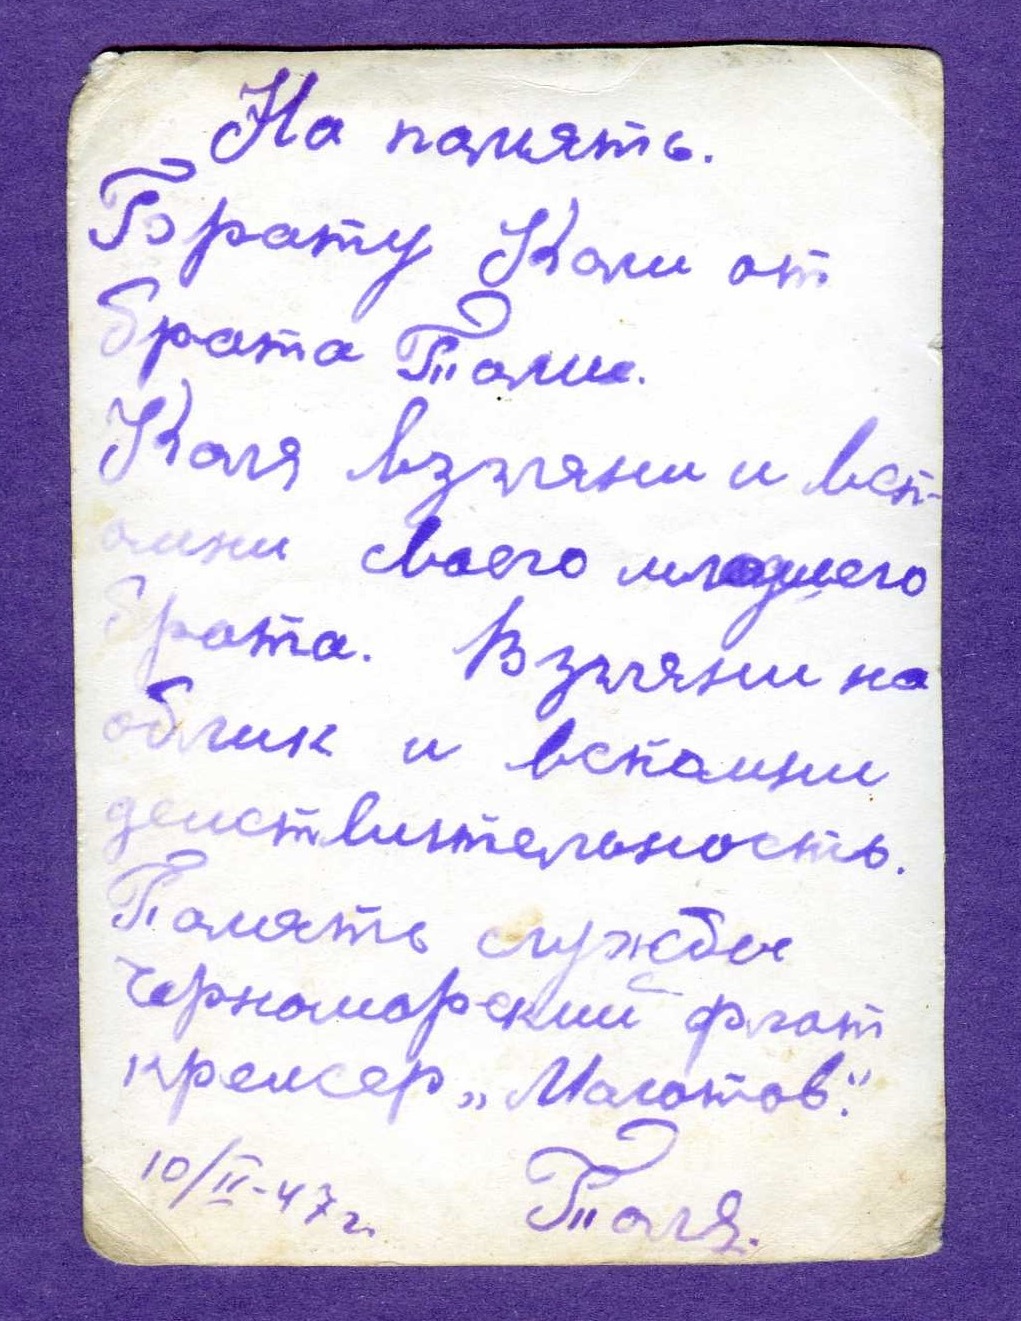 На память.
Брату Коли от
брата Толи.
Коля взгляни и всп-
омни своего младшего
брата. Взгляни на
облик и вспомни
деиствительность.
Память службы
Черноморский флот
крейсер „Молотов“.
10/II-47г. Толя.